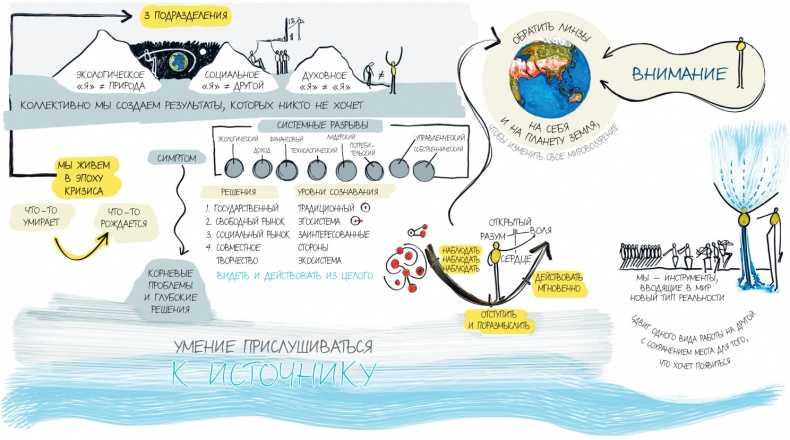 3 ПОДРАЗДЕЛЕНИЯ
ЭКОЛОГИЧЕСКОЕ
«Я» ≠ ПРИРОДА
СОЦИАЛЬНОЕ
«Я» ≠ ДРУГОЙ
ДУХОВНОЕ
«Я» ≠ «Я»
≠
КОЛЛЕКТИВНО МЫ СОЗДАЕМ РЕЗУЛЬТАТЫ, КОТОРЫХ НИКТО НЕ ХОЧЕТ
СИСТЕМНЫЕ РАЗРЫВЫ
ЭКОЛОГИЧЕСКИЙ
ДОХОД
ФИНАНСОВЫЙ
ТЕХНОЛОГИЧЕСКИЙ
ЛИДЕРСКИЙ
ПОТРЕБИ-
ТЕЛЬСКИЙ
УПРАВЛЕНЧЕСКИЙ
СОБСТВЕННИЧЕСКИЙ
МЫ ЖИВЕМ
В ЭПОХУ
КРИЗИСА
ЧТО-ТО
УМИРАЕТ
ЧТО-ТО
РОЖДАЕТСЯ
СИМПТОМ
РЕШЕНИЯ УРОВНИ СОЗНАВАНИЯ
1. ГОСУДАРСТВЕННЫЙ ТРАДИЦИОННЫЙ
2. СВОБОДНЫЙ РЫНОК ЭГОСИСТЕМА
3. СОЦИАЛЬНЫЙ РЫНОК ЗАИНТЕРЕСОВАННЫЕ
4. СОВМЕСТНОЕ СТОРОНЫ
ТВОРЧЕСТВО ЭКОСИСТЕМА
ВИДЕТЬ И ДЕЙСТВОВАТЬ ИЗ ЦЕЛОГО
КОРНЕВЫЕ
ПРОБЛЕМЫ
И ГЛУБОКИЕ
РЕШЕНИЯ
УМЕНИЕ ПРИСЛУШИВАТЬСЯ
К ИСТОЧНИКУ
НАБЛЮДАТЬ
НАБЛЮДАТЬ
НАБЛЮДАТЬ
ОТКРЫТЫЙ
РАЗУМ
ВОЛЯ
СЕРДЦЕ
ДЕЙСТВОВАТЬ
МГНОВЕННО
ОТСТУПИТЬ
И ПОРАЗМЫСЛИТЬ
ОБРАТИТЬ ЛИНЗЫ
НА СЕБЯ
И НА ПЛАНЕТУ ЗЕМЛЯ,
ЧТОБЫ ИЗМЕНИТЬ СВОЕ МИРОВОЗЗРЕНИЕ
ВНИМАНИЕ
МЫ — ИНСТРУМЕНТЫ,
ВВОДЯЩИЕ В МИР
НОВЫЙ ТИП РЕАЛЬНОСТИ
СДВИГ ОДНОГО ВИДА РАБОТЫ НА ДРУГОЙ
С СОХРАНЕНИЕМ МЕСТА ДЛЯ ТОГО,
ЧТО ХОЧЕТ ПОЯВИТЬСЯ